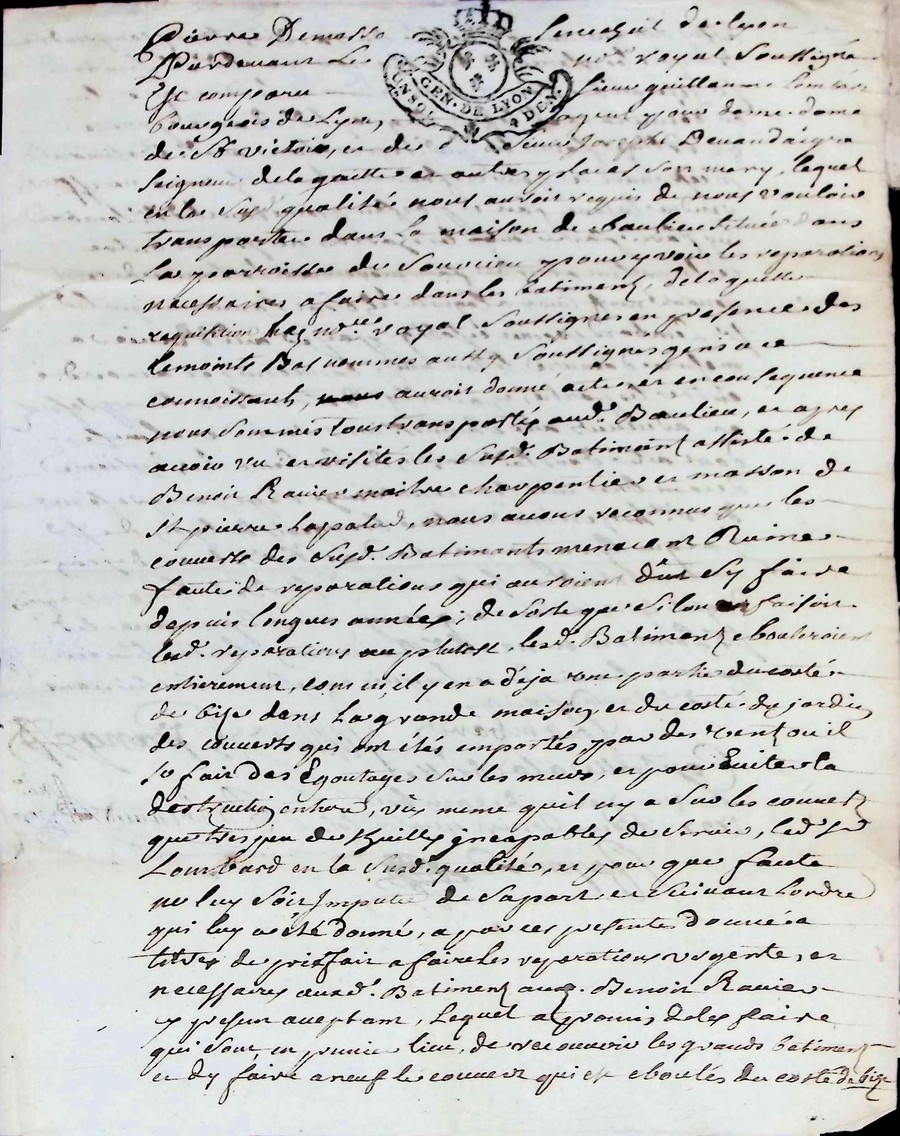 Pierre Demosso Senechal de Lyon
Pardevant Le no.re royal Soussigné
Est comparu Sieur guillaume Lombard
bourgeois de Lyon agent pour dame dame
de St victoir, et de Joseph
Seigneur de la gaitte et autres places Son mary, lequel
en la Susd. qualité nous auroit requis de nous vouloir
transporter dans La maison de baulieu Située dans
La parroisse de Souvieu pour y voir les reparations
necessaires a faire dans les batiments, de laquelle
requisition Le no.re royal Soussigné en presence des
temoints Bas nommés aussy Soussignes gens a ce
connoissants, auroit donné actes et en consequence
nous Sommes tous transportés aud. Baulieu, et apres
avoir vu et visités les Susd. Batiments assistés de
Benoit Ravier maitre charpentier et masson de
St pierre Lapalud, nous avons reconnus que les
couverts des Susd. Batiments menacent Ruine
faute de reparations qui auroient dut Sy faire
depuis longues années; de Sorte que Si lon faisoit
lesd. reparations au plutost, lesd. Batiments ebouleroient
entierement, comme il y en a déja une partie du costé
de bize dans La grande maison et du costé du jardin
des couverts qui ont étés emportés par des vents ou il
se fait des Egoutages Sur les murs, et pour Eviter la
destruction entiere, vu meme quil ny a Sur les couverts
que tres peu de thuilles incapables de Servir, led. Sr
Lombard en la Susd. qualité, et pour que faute
ne luy Soit Imputée de Sa part, et Suivant Lordre
qui luy a été donné, a par ces presentes donné a
titres de prixfait a faire Les reparations urgentes, et
necessaires auxd. Batiments aud. Benoit Ravier
y present aceptant, Lequel a promis de les faire
qui Sont, en premier lieu, de recouvrir les grands batiments
et dy faire a neuf le couvert qui est eboulés du costé de bize
GEN. DE LYON